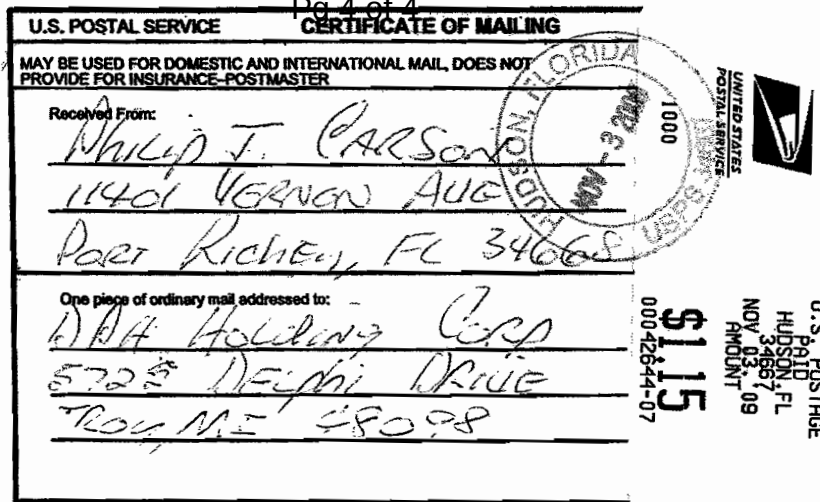 Pg 4 of 4
U.S. POSTAL SERVICE CERTIFICATE OF MAILING
MAY BE USED FOR DOMESTIC AND INTERNATIONAL MAIL, DOES NOT
PROVIDE FOR INSURANCE-POSTMASTER
Received From:
PHILIP J. CARSON
11401 VERNON AVE
PORT RICHEY, FL 34668
One piece of ordinary mail addressed to:
DPH HOLDING CORP
5725 DELPHI DRIVE
TROY, MI 48098
HUDSON, FLORIDA
NOV - 3 2009
USPS
1000
UNITED STATES
POSTAL SERVICE
U.S. POSTAGE
PAID
HUDSON, FL
34667
NOV 03, '09
AMOUNT
$1.15
00042644-07